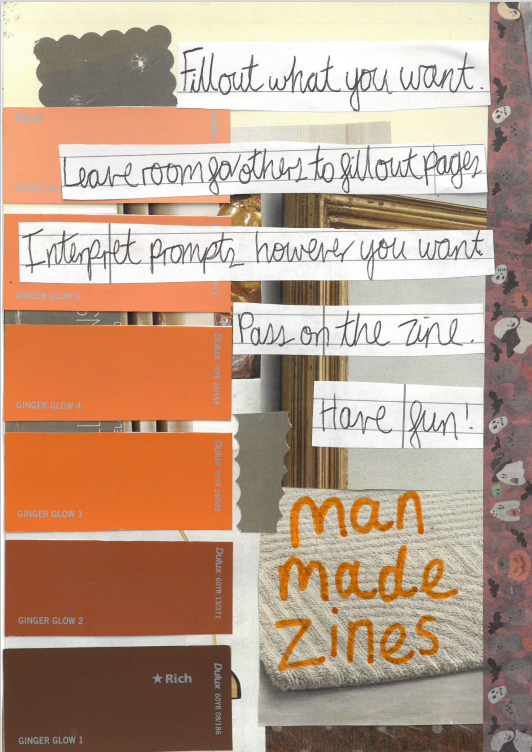 Fill out what you want.
Leave room for others to fill out pages
Interpret prompts however you want
GINGER GLOW 5
Pass on the zine.
Dulux 70YR
GINGER GLOW 4
Have fun!
Dulux
GINGER GLOW 3
man
made
zines
Dulux 60YR 13/371
GINGER GLOW 2
★ Rich
Dulux 60YR 08/186
GINGER GLOW 1